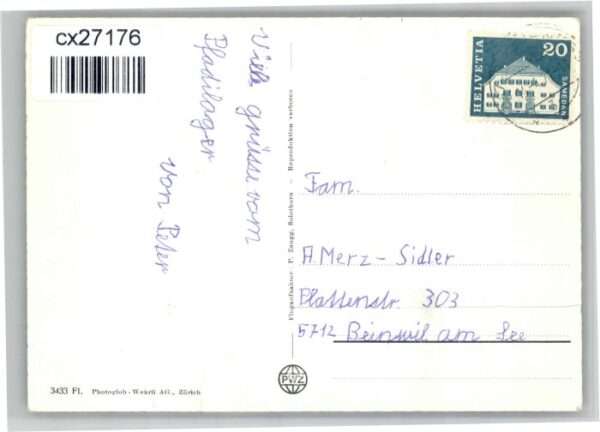 cx27176
Viele grüsse vom
Pfadilager
von Peter
HELVETIA
20
SAMEDAN
Flugaufnahme P. Zaugg, Solothurn – Reproduktion verboten
Fam.
A. Merz - Sidler
Plattenstr. 303
5712 Beinwil am See
3433 Fl. Photoglob-Wehrli AG., Zürich
PWZ